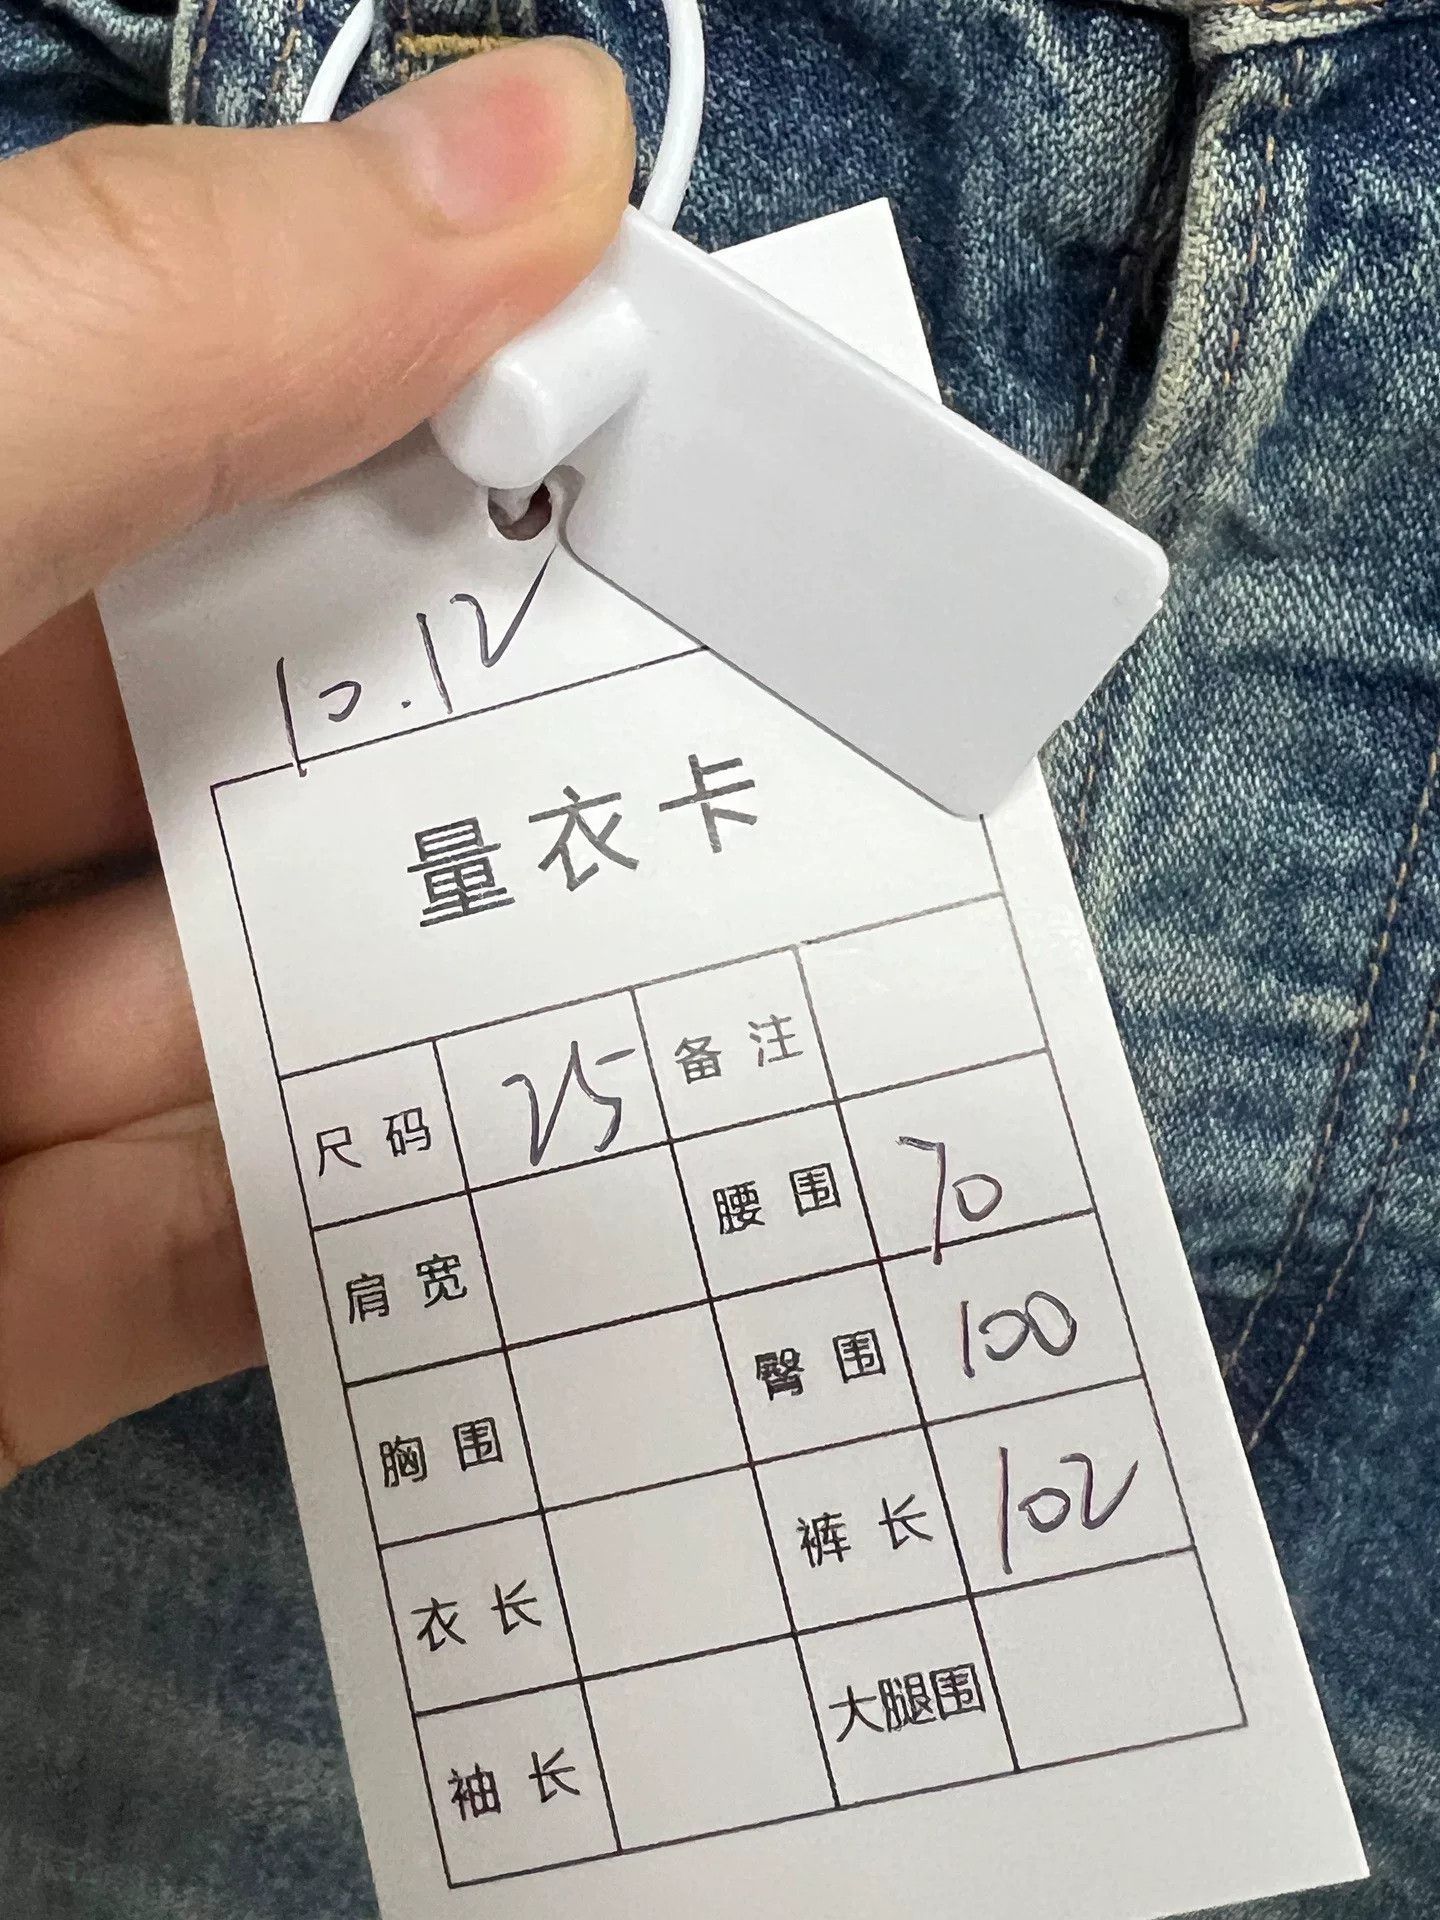 10.12
量衣卡
尺码 25 备注
肩宽 腰围 70
胸围 臀围 100
衣长 裤长 102
袖长 大腿围